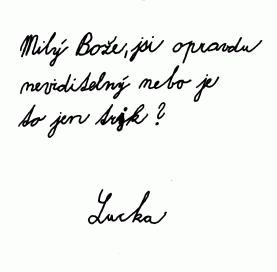 Milý Bože, jsi opravdu
neviditelný nebo je
to jen trik?
Lucka